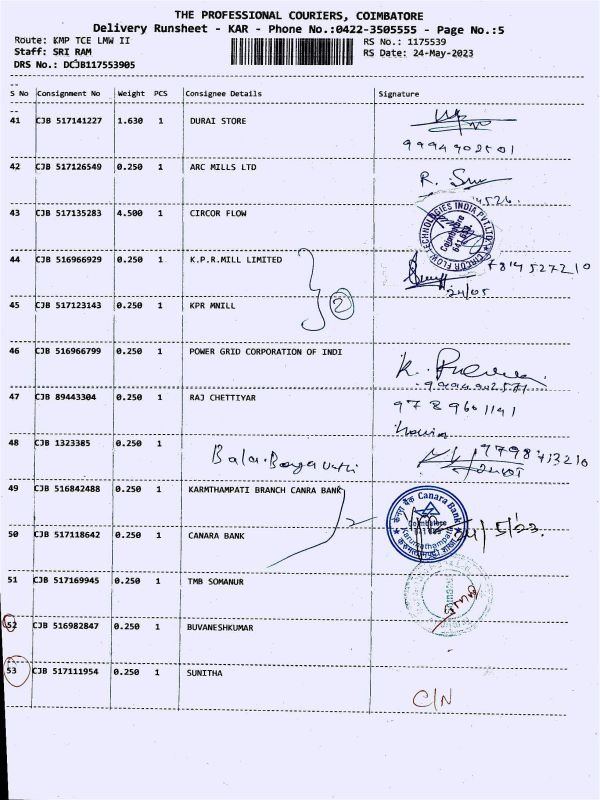 THE PROFESSIONAL COURIERS, COIMBATORE
Delivery Runsheet - KAR - Phone No.:0422-3505555 - Page No.:5
Route: KMP TCE LMW II
RS No.: 1175539
Staff: SRI RAM
RS Date: 24-May-2023
DRS No.: DCJB117553905
S No Consignment No Weight PCS Consignee Details Signature
41 CJB 517141227 1.630 1 DURAI STORE
42 CJB 517126549 0.250 1 ARC MILLS LTD
43 CJB 517135283 4.500 1 CIRCOR FLOW
CIRCOR FLOW TECHNOLOGIES INDIA PVT.LTD.
44 CJB 516966929 0.250 1 K.P.R.MILL LIMITED
7814527210
24/05
2
45 CJB 517123143 0.250 1 KPR MNILL
46 CJB 516966799 0.250 1 POWER GRID CORPORATION OF INDI
47 CJB 89443304 0.250 1 RAJ CHETTIYAR
9789601141
48 CJB 1323385 0.250 1
9798413210
49 CJB 516842488 0.250 1 KARMTHAMPATI BRANCH CANRA BANK
Canara Bank
24/5/23.
50 CJB 517118642 0.250 1 CANARA BANK
51 CJB 517169945 0.250 1 TMB SOMANUR
52 CJB 516982847 0.250 1 BUVANESHKUMAR
53 CJB 517111954 0.250 1 SUNITHA
C/N